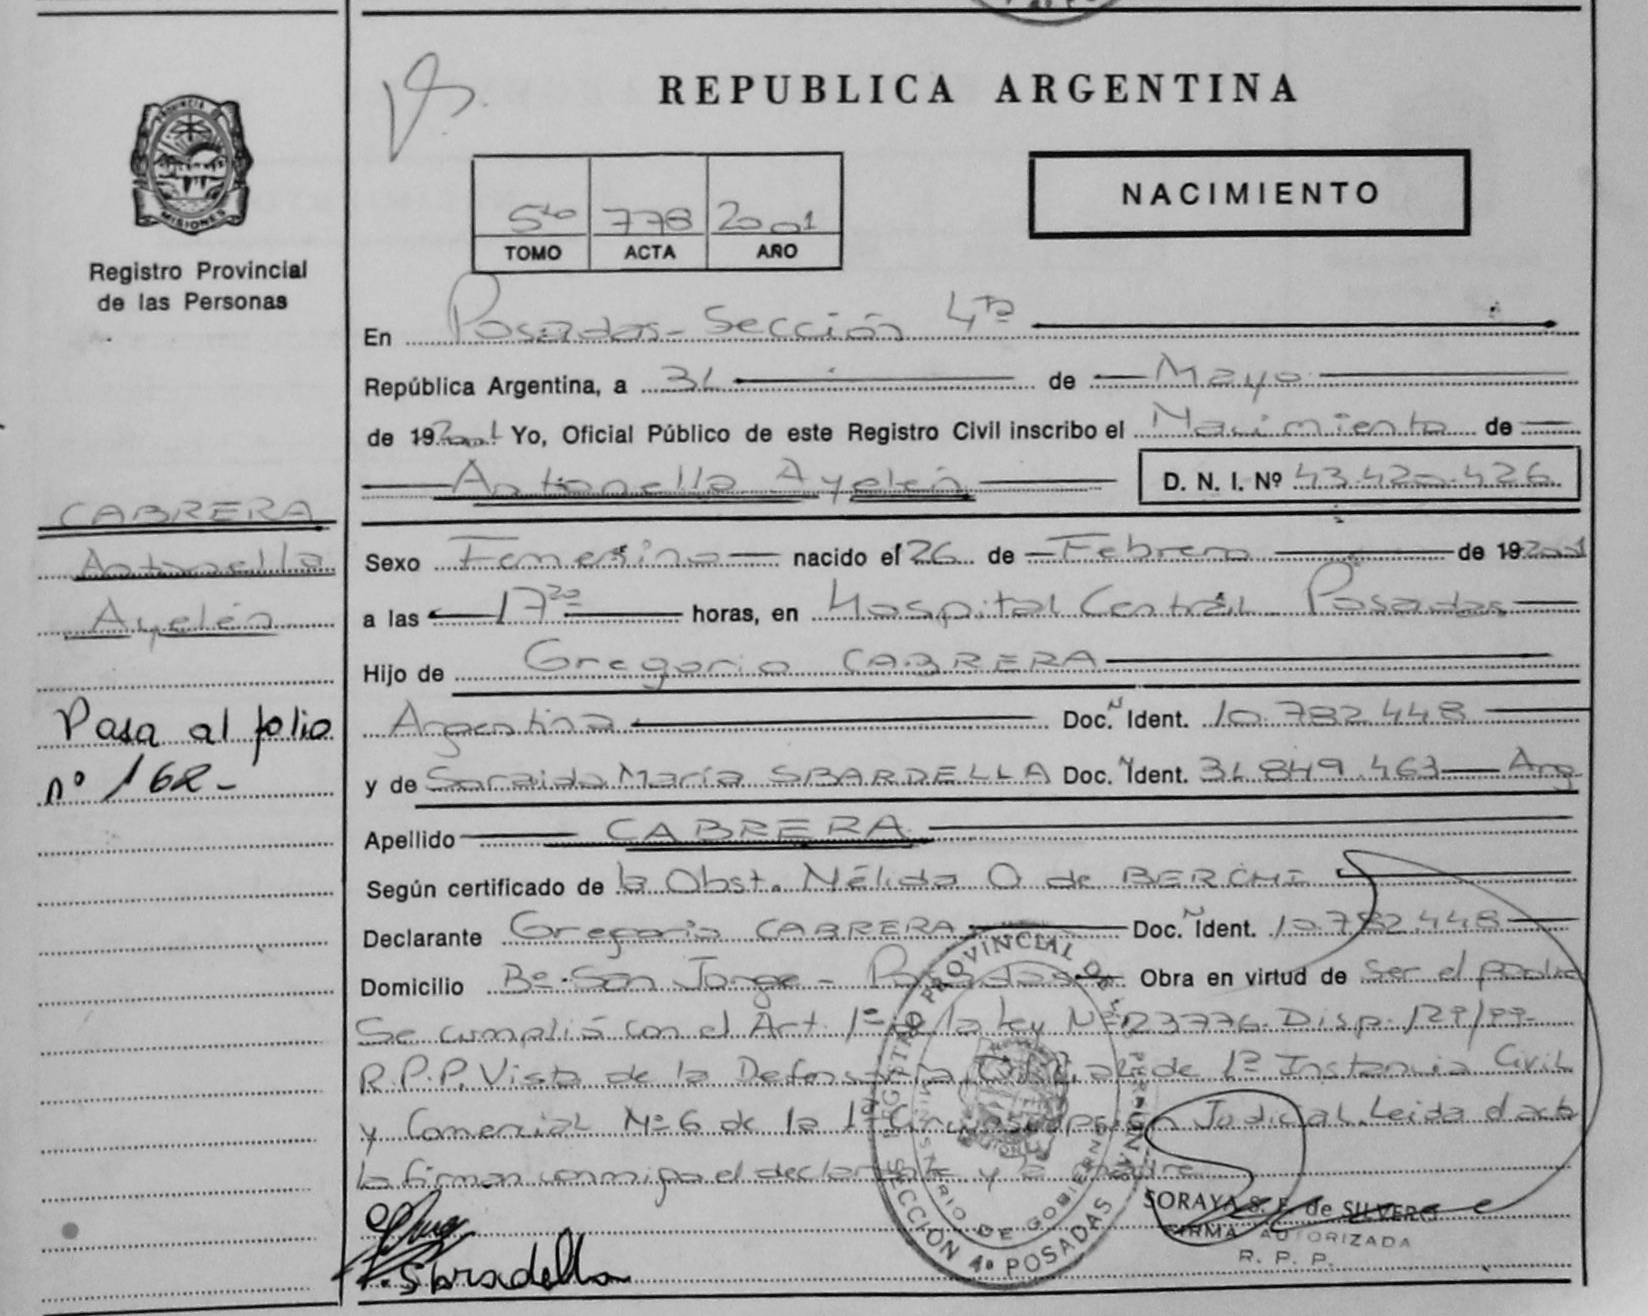 REPUBLICA ARGENTINA
PROVINCIA DE
MISIONES
Registro Provincial
de las Personas
5to 778 2001
TOMO ACTA AÑO
NACIMIENTO
En Posadas - Sección 4ta
República Argentina, a 31 de Mayo
de 192001 Yo, Oficial Público de este Registro Civil inscribo el Nacimiento de
Antonella Ayelén D. N. I. Nº 43.420.426
CABRERA
Antonella
Ayelén
Pasa al folio
nº 162-
Sexo Femenino nacido el 26 de Febrero de 192001
a las 17 30 horas, en Hospital Central Posadas
Hijo de Gregorio CABRERA
Argentina Doc. Ident. 10.782.448
y de Soraida María SBARDELLA Doc. Ident. 31.849.463 Arg
Apellido CABRERA
Según certificado de la Obst. Nélida O de BERCHI
Declarante Gregorio CABRERA Doc. Ident. 10.782.448
Domicilio Bº San Jorge - Posadas Obra en virtud de ser el padre
Se cumplió con el Art. 1º de la ley Nº 23776. Disp.
R.P.P. Vista de la Defensoría Oficial de 1º Instancia Civil
y Comercial Nº 6 de la 1º Circunscripción Judicial. Leida el acta
la firman conmigo el declarante y la madre
REGISTRO PROVINCIAL DE LAS PERSONAS
MINISTERIO DE GOBIERNO
SECCIÓN 4º POSADAS
SORAYA S. F. de SILVERO
FIRMA AUTORIZADA
R. P. P.
Sbradella